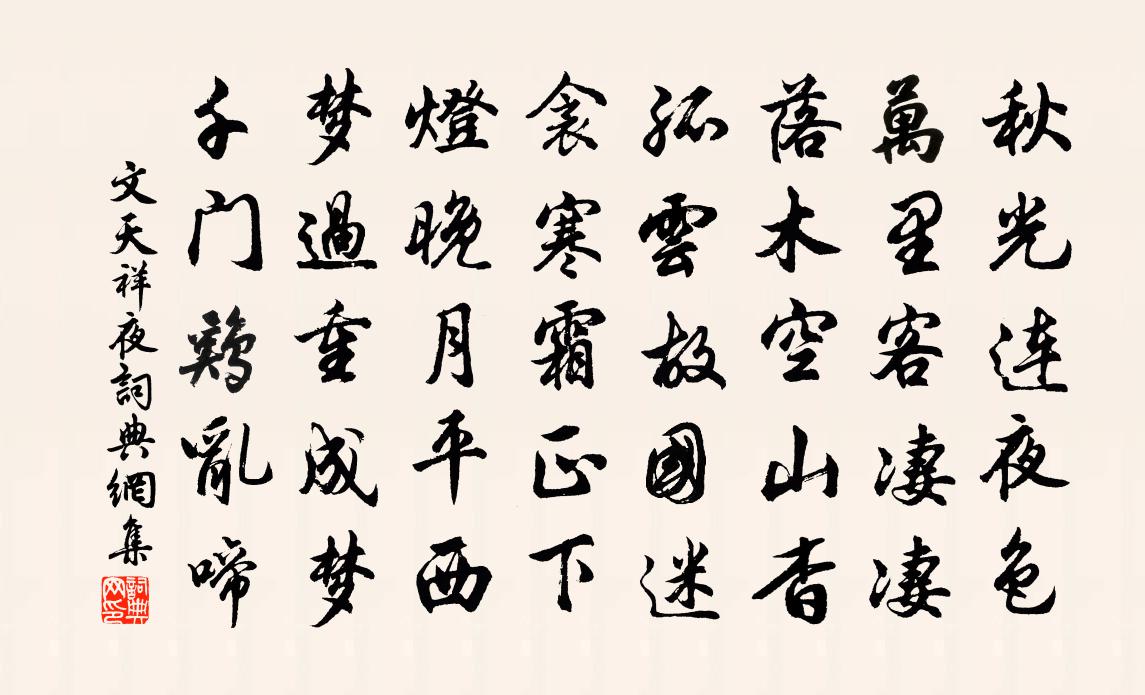 秋光连夜色
萬里客凄凄
落木空山杳
孤雲故國迷
衾寒霜正下
燈晚月平西
梦過重成梦
千门鷄亂啼
文天祥夜詞典網集
詞典网印